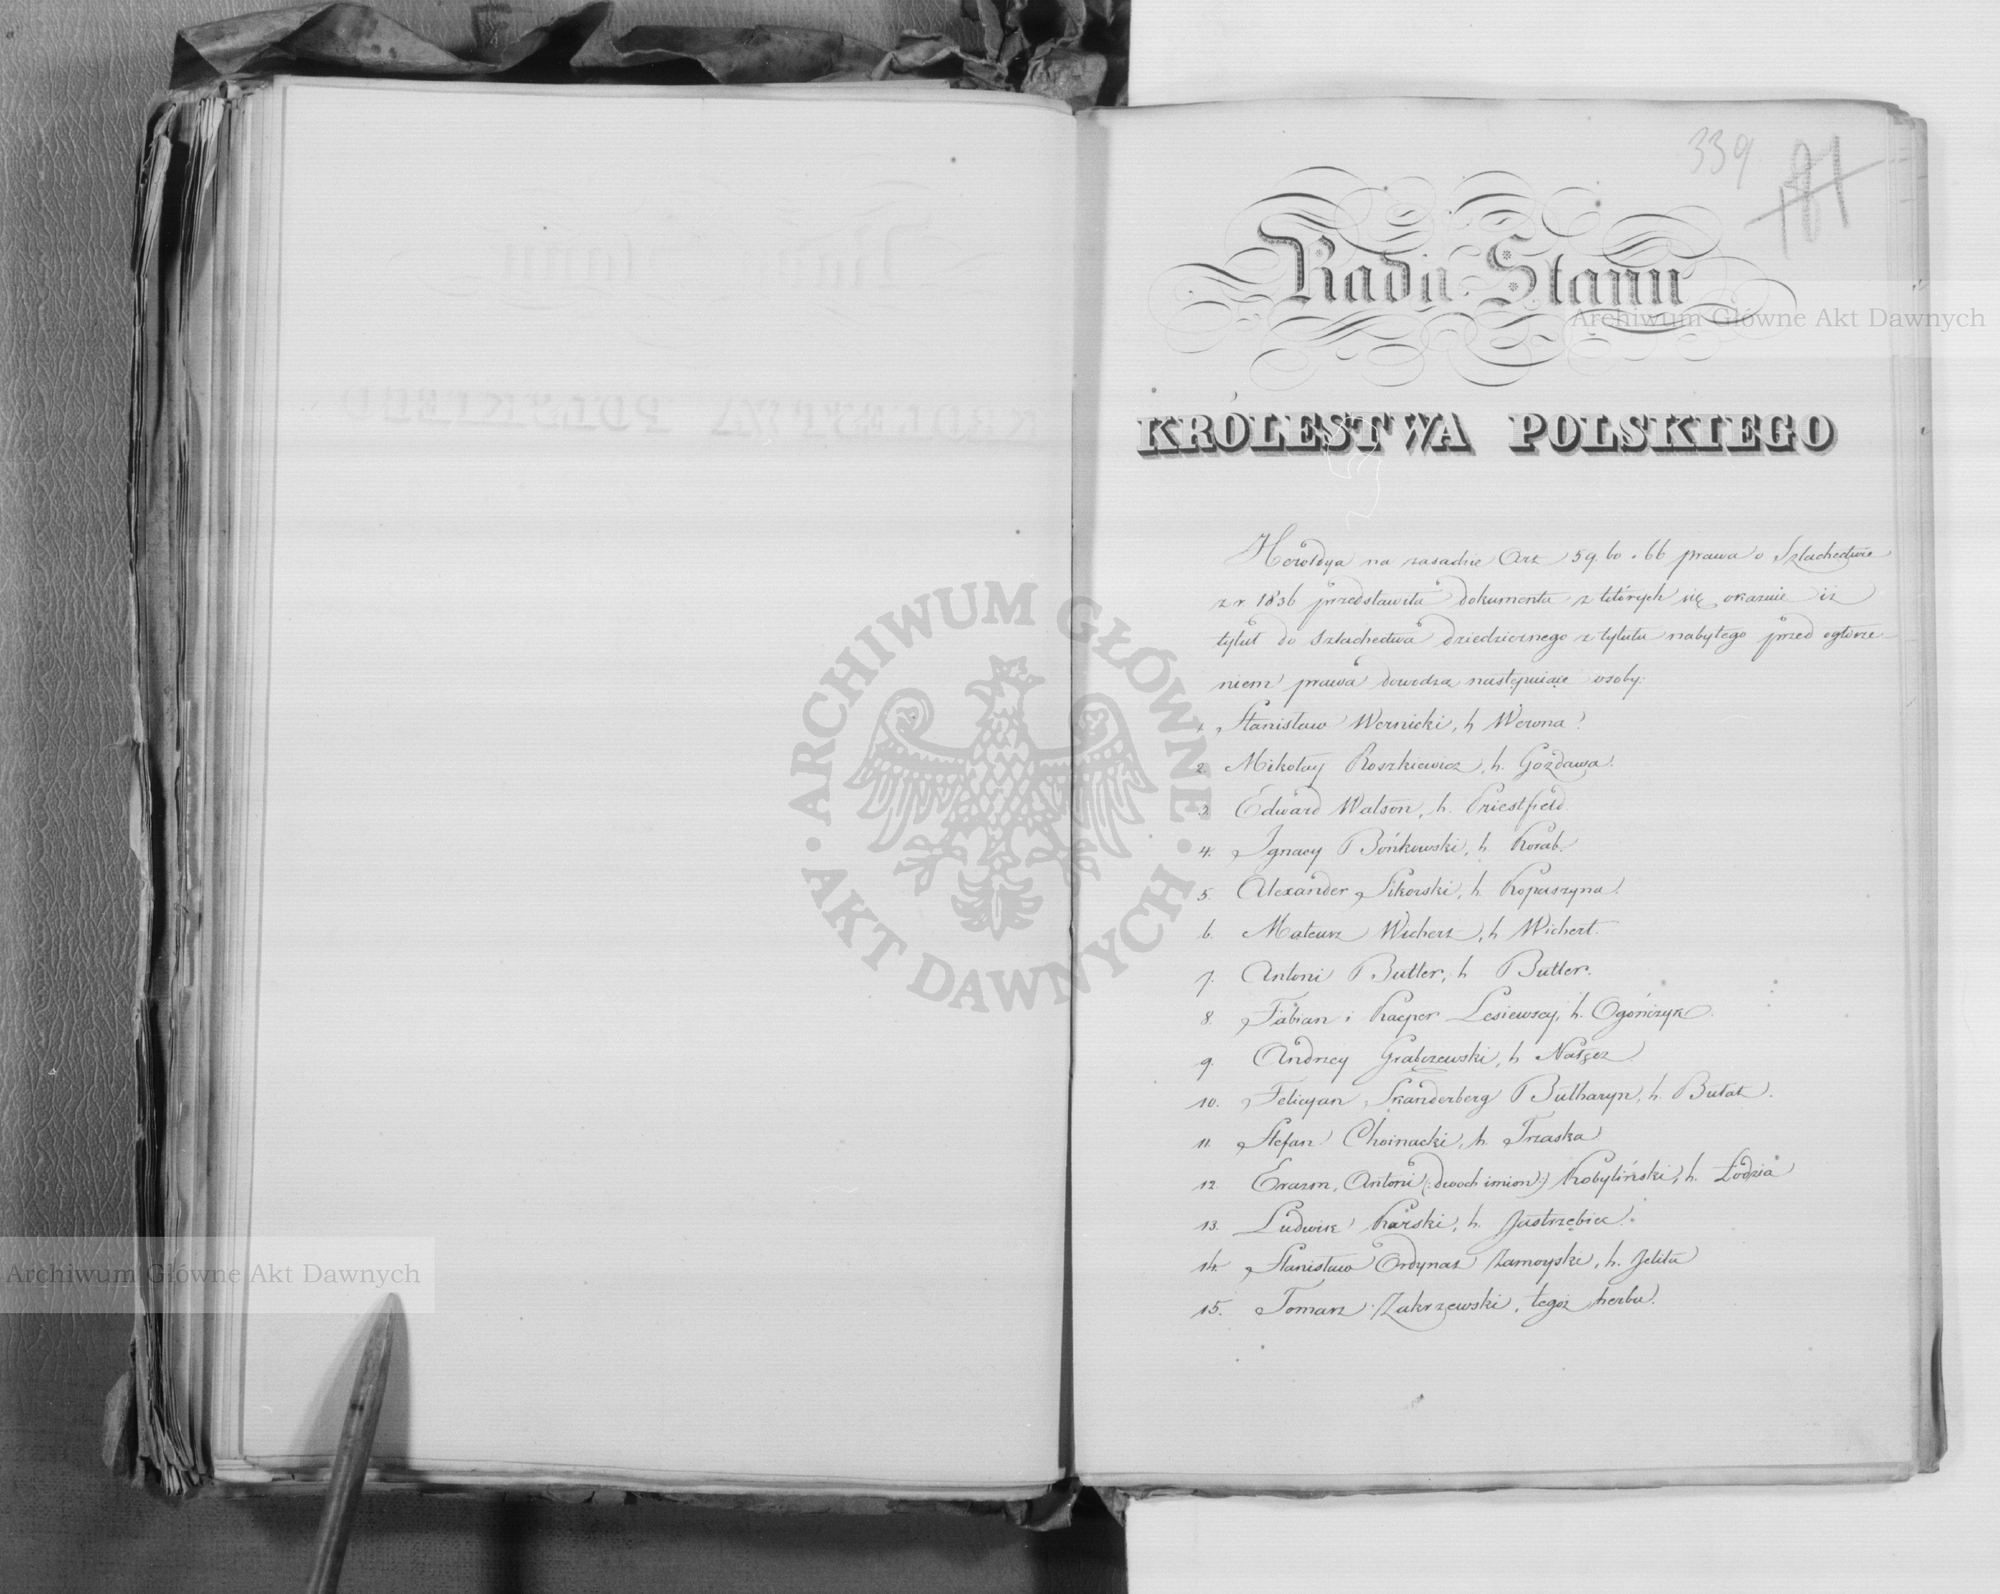 339
Rada Stanu
KRÓLESTWA POLSKIEGO
Heroldya na zasadzie Art 59. 60. 66 prawa o Szlachectwie
z r. 1836 przedstawiła dokumenta z których się okazuie iż
tytuł do Szlachectwa dziedzicznego z tytułu nabytego przed ogłosze-
niem prawa dowodzą następuiące osoby:
1. Stanisław Wernicki, h Werona
2. Mikołay Roszkiewicz, h. Gozdawa.
3. Edward Watson, h. Priestfield
4. Ignacy Bońkowski, h Korab.
5. Alexander Sikorski, h. Kopaszyna.
6. Mateusz Wichert, h Wichert.
7. Antoni Butler, h Butler.
8. Fabian i Kacper Lesiewscy, h. Ogończyk.
9. Andrzey Grabczewski, h Nałęcz
10. Felicyan Skanderberg Bułharyn, h. Bułat.
11. Stefan Choinacki, h. Trzaska
12. Erazm, Antoni (: dwoch imion :) Kobyliński, h. Łodzia
13. Ludwik Karski, h. Jastrzębiec.
14. Stanisław Ordynat Zamoyski, h. Jelita
15. Tomasz Zakrzewski, tegoż herbu.
Archiwum Główne Akt Dawnych
ARCHIWUM GŁÓWNE
AKT DAWNYCH
Archiwum Główne Akt Dawnych